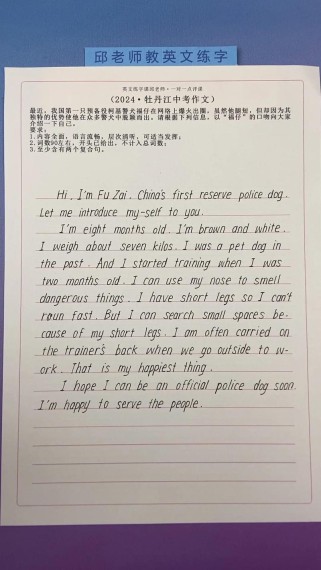 邱老师教英文练字
英文练字课堂老师·一对一点评课
（2024·牡丹江中考作文）
最近，我国第一只预备役柯基警犬福仔在网络上爆火出圈。虽然他腿短，但却因为其
独特的优势使他在众多警犬中脱颖而出。请根据下列信息，以“福仔”的口吻向大家
介绍一下自己。
要求：
1.内容全面，语言流畅，层次清晰，可适当发挥；
2.词数90左右，开头已给出，不计入总词数；
3.至少含有两个复合句。
Hi, I'm Fu Zai, China's first reserve police dog.
Let me introduce my-self to you.
I'm eight months old. I'm brown and white.
I weigh about seven kilos. I was a pet dog in
the past. And I started training when I was
two months old. I can use my nose to smell
dangerous things. I have short legs so I can't
run fast. But I can search small spaces be-
cause of my short legs. I am often carried on
the trainer's back when we go outside to w-
ork. That is my happiest thing.
I hope I can be an official police dog soon.
I'm happy to serve the people.